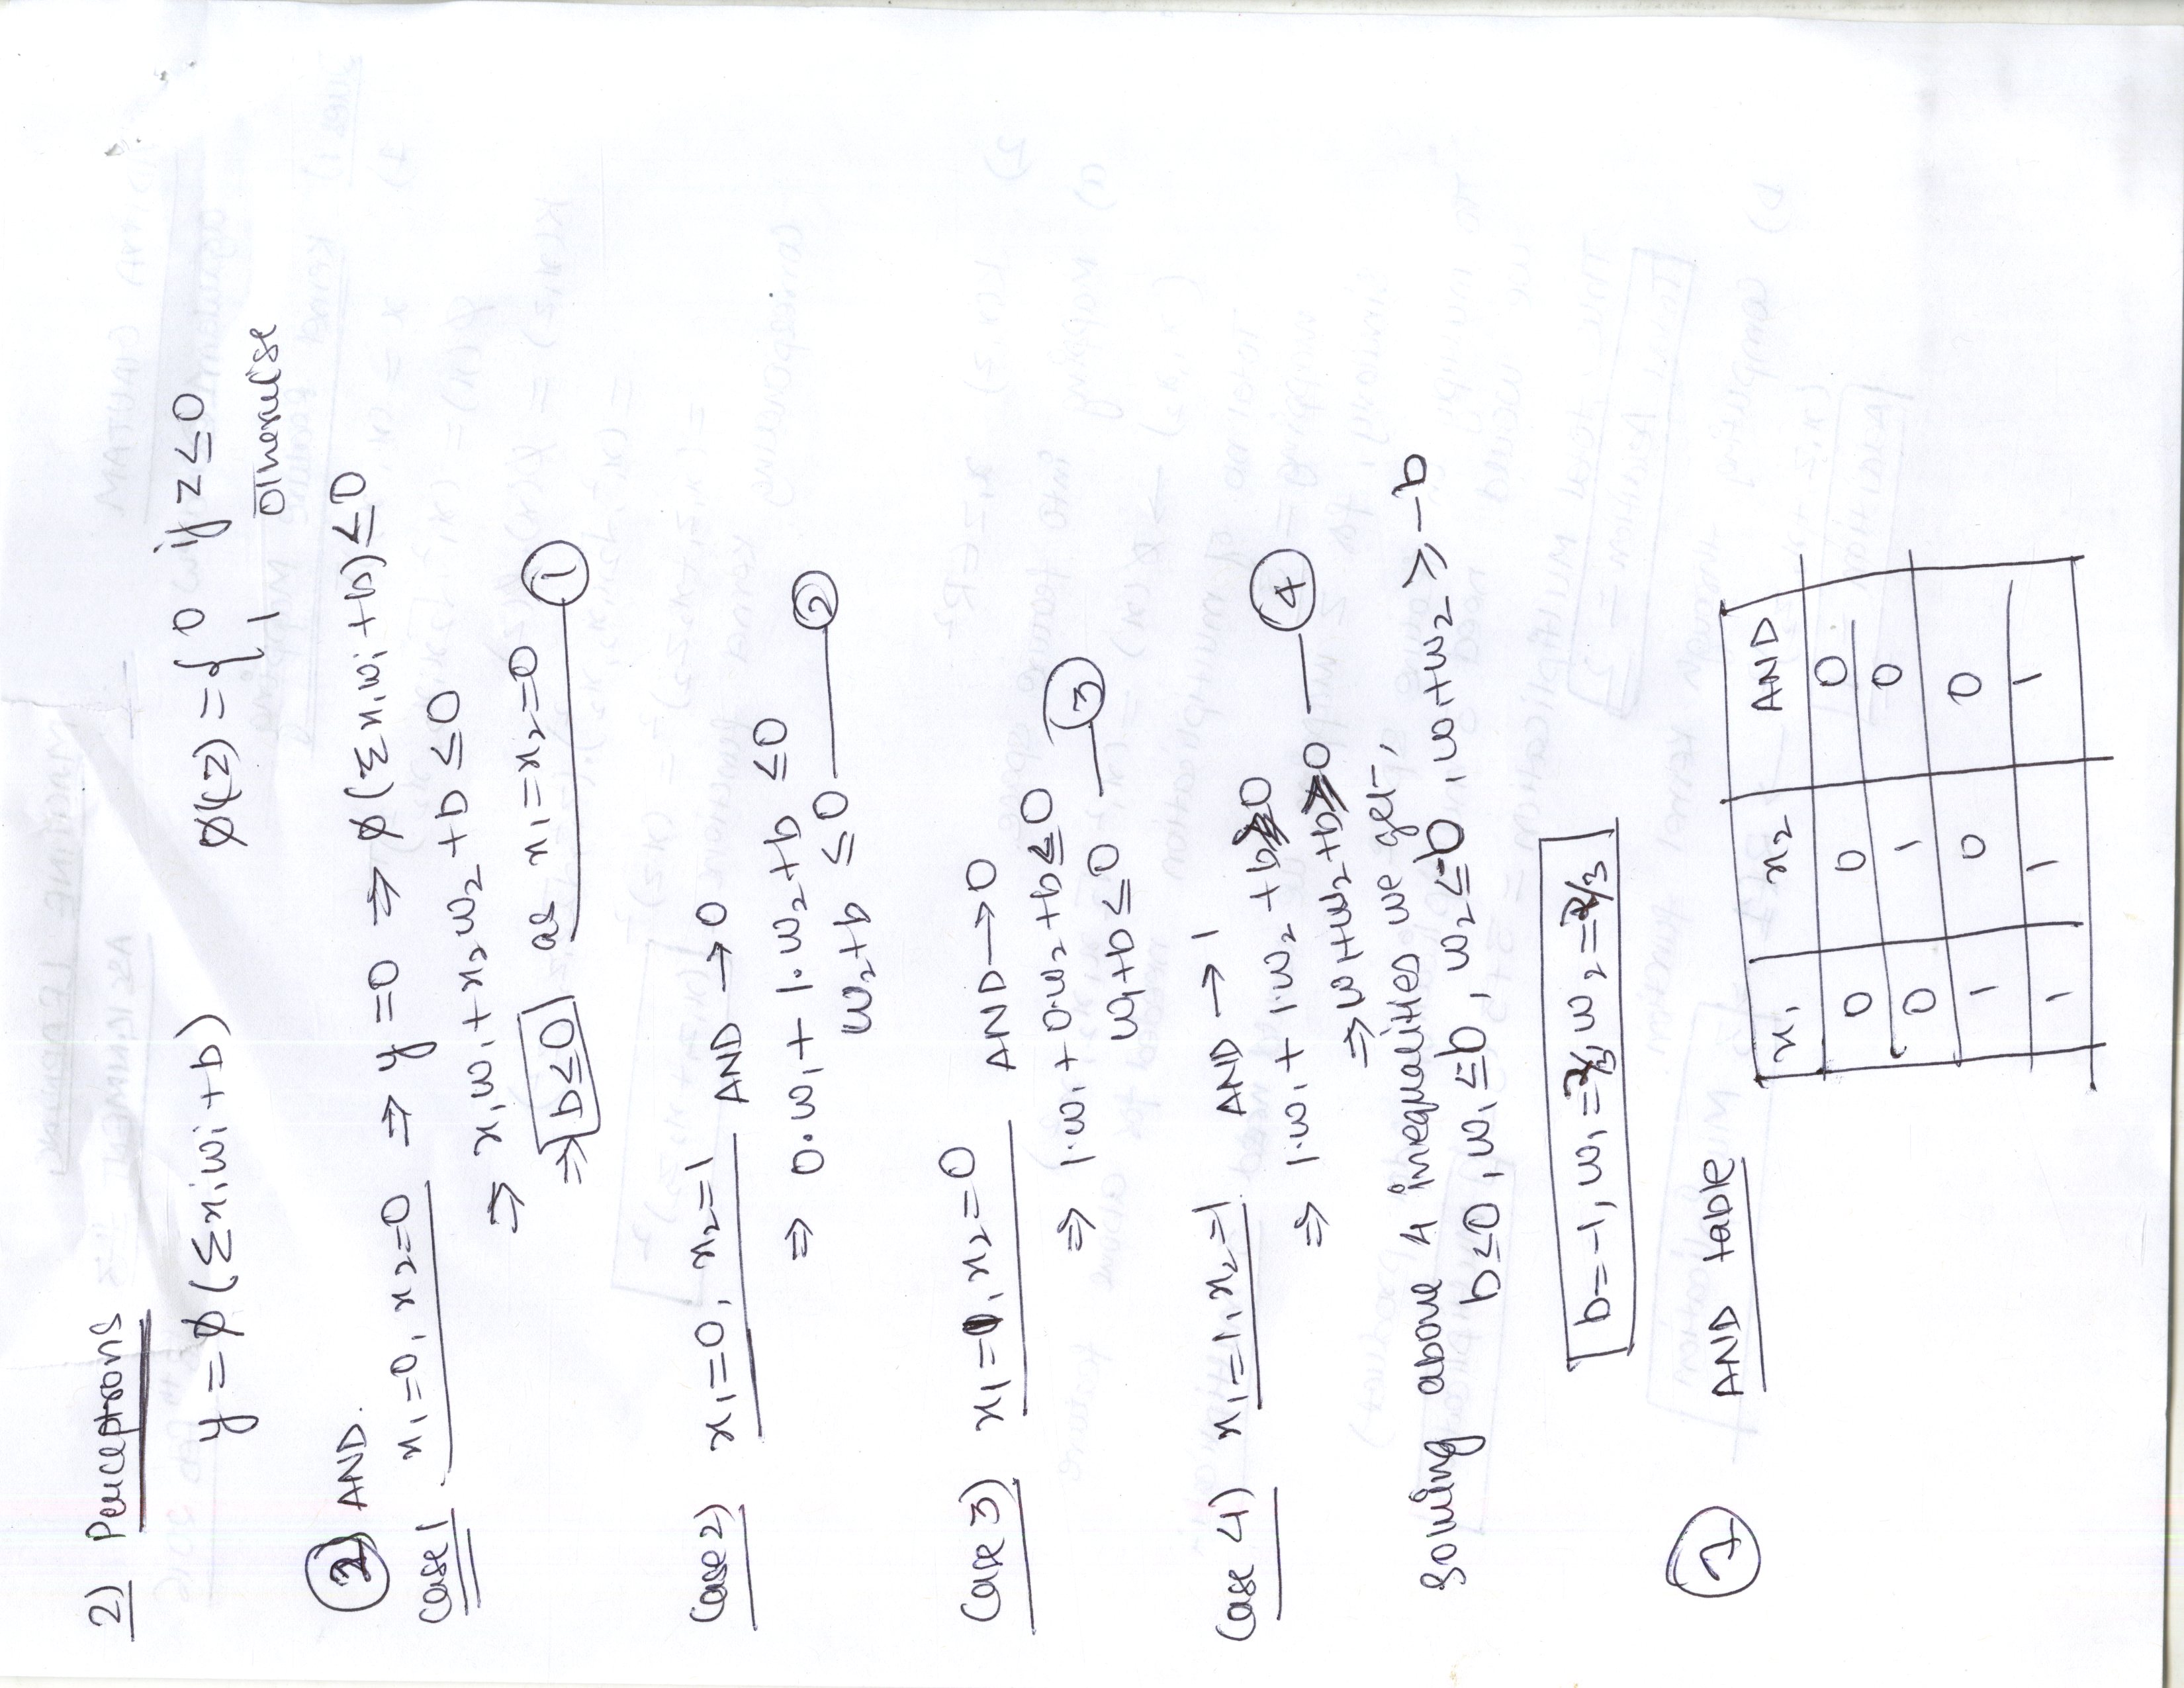 2) Perceptrons
y = φ(Σxiwi+b)    φ(z) = { 0 if z≤0
1 otherwise
② AND.
Case 1 x1=0, x2=0 ⇒ y=0 ⇒ φ(Σxiwi+b)≤0
⇒ x1w1 + x2w2 + b ≤0
⇒ b≤0 as x1=x2=0 — ①
Case 2) x1=0, x2=1 AND → 0
⇒ 0.w1 + 1.w2+b ≤0
w2+b ≤0 — ②
Case 3) x1=1, x2=0 AND → 0
⇒ 1.w1 + 0.w2+b≤0
w1+b≤0 — ③
Case 4) x1=1, x2=1 AND → 1
⇒ 1.w1 + 1.w2+b>0
⇒ w1+w2+b>0 — ④
Solving above 4 inequalities we get,
b≤0, w1≤-b, w2≤-b, w1+w2>-b
b=-1, w1=2/3, w2=2/3
① AND table
x1 x2 AND
0 0 0
0 1 0
1 0 0
1 1 1